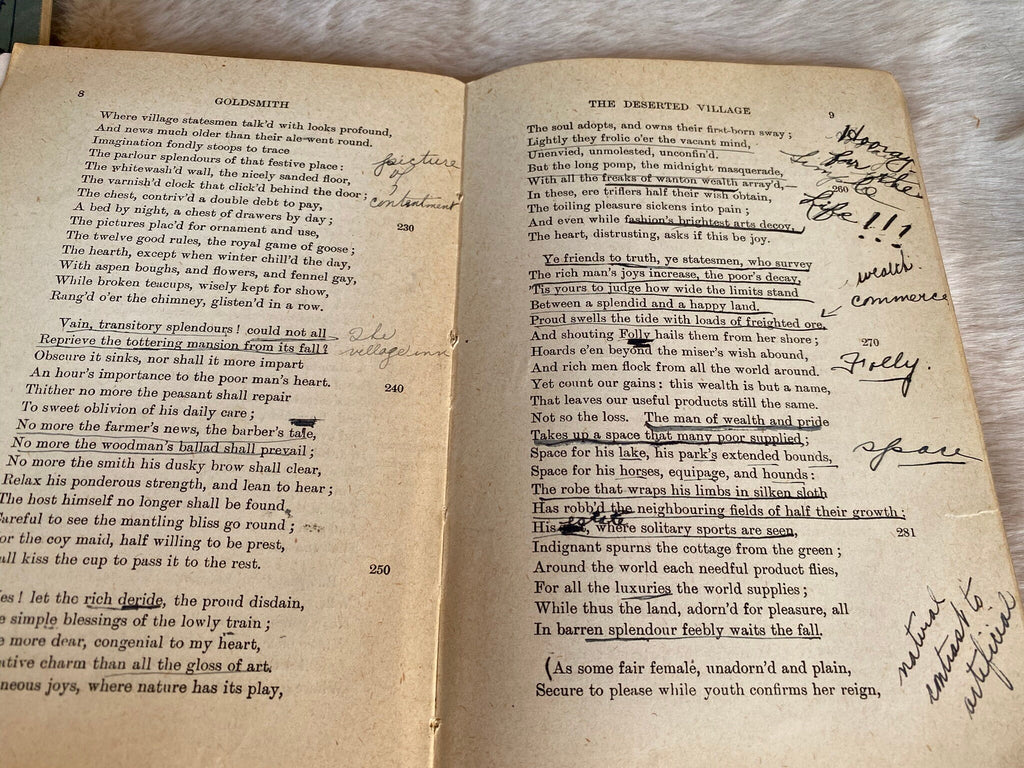 8
GOLDSMITH
Where village statesmen talk'd with looks profound,
And news much older than their ale went round.
Imagination fondly stoops to trace
The parlour splendours of that festive place:
The whitewash'd wall, the nicely sanded floor,
The varnish'd clock that click'd behind the door;
The chest, contriv'd a double debt to pay,
A bed by night, a chest of drawers by day; 230
The pictures plac'd for ornament and use,
The twelve good rules, the royal game of goose;
The hearth, except when winter chill'd the day,
With aspen boughs, and flowers, and fennel gay,
While broken teacups, wisely kept for show,
Rang'd o'er the chimney, glisten'd in a row.
picture
of
contentment
Vain, transitory splendours! could not all
Reprieve the tottering mansion from its fall?
Obscure it sinks, nor shall it more impart
An hour's importance to the poor man's heart. 240
Thither no more the peasant shall repair
To sweet oblivion of his daily care;
No more the farmer's news, the barber's tale,
No more the woodman's ballad shall prevail;
No more the smith his dusky brow shall clear,
Relax his ponderous strength, and lean to hear;
The host himself no longer shall be found
Careful to see the mantling bliss go round;
or the coy maid, half willing to be prest,
all kiss the cup to pass it to the rest. 250
The
village inn
es! let the rich deride, the proud disdain,
e simple blessings of the lowly train;
e more dear, congenial to my heart,
ative charm than all the gloss of art.
neous joys, where nature has its play,
THE DESERTED VILLAGE
9
The soul adopts, and owns their first-born sway;
Lightly they frolic o'er the vacant mind,
Unenvied, unmolested, unconfin'd.
But the long pomp, the midnight masquerade,
With all the freaks of wanton wealth array'd,—
In these, ere triflers half their wish obtain, 260
The toiling pleasure sickens into pain;
And even while fashion's brightest arts decoy,
The heart, distrusting, asks if this be joy.
Hooray
for the
Simple
Life!!!
Ye friends to truth, ye statesmen, who survey
The rich man's joys increase, the poor's decay,
'Tis yours to judge how wide the limits stand
Between a splendid and a happy land.
Proud swells the tide with loads of freighted ore,
And shouting Folly hails them from her shore; 270
Hoards e'en beyond the miser's wish abound,
And rich men flock from all the world around.
Yet count our gains: this wealth is but a name,
That leaves our useful products still the same.
Not so the loss. The man of wealth and pride
Takes up a space that many poor supplied;
Space for his lake, his park's extended bounds,
Space for his horses, equipage, and hounds:
The robe that wraps his limbs in silken sloth
Has robb'd the neighbouring fields of half their growth;
His estate, where solitary sports are seen, 281
Indignant spurns the cottage from the green;
Around the world each needful product flies,
For all the luxuries the world supplies;
While thus the land, adorn'd for pleasure, all
In barren splendour feebly waits the fall.
wealth.
commerce
Folly.
space
(As some fair female, unadorn'd and plain,
Secure to please while youth confirms her reign,
natural
contrast to
artificial